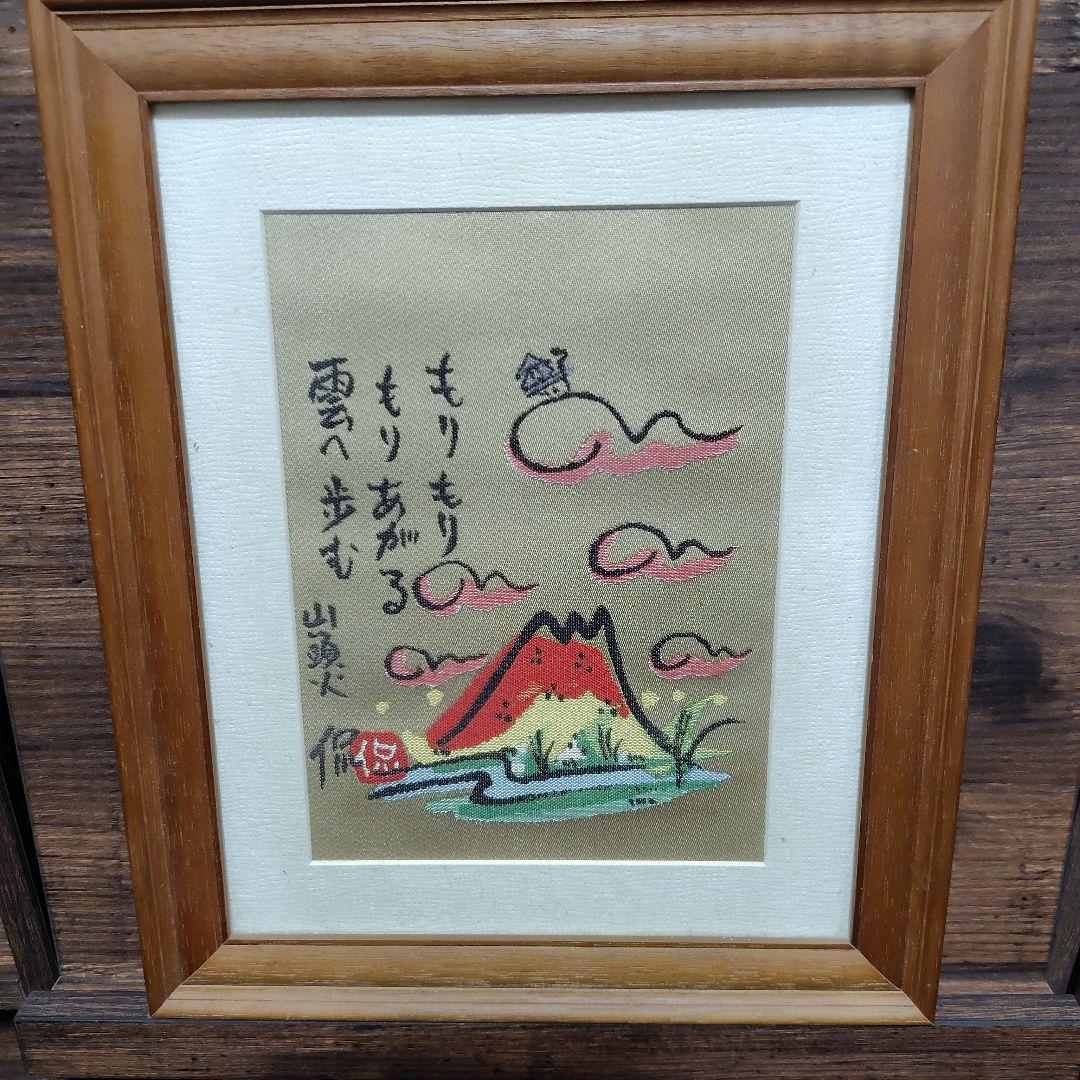 もりもり
もりあがる
雲へ歩む
山頭火
侃
侃